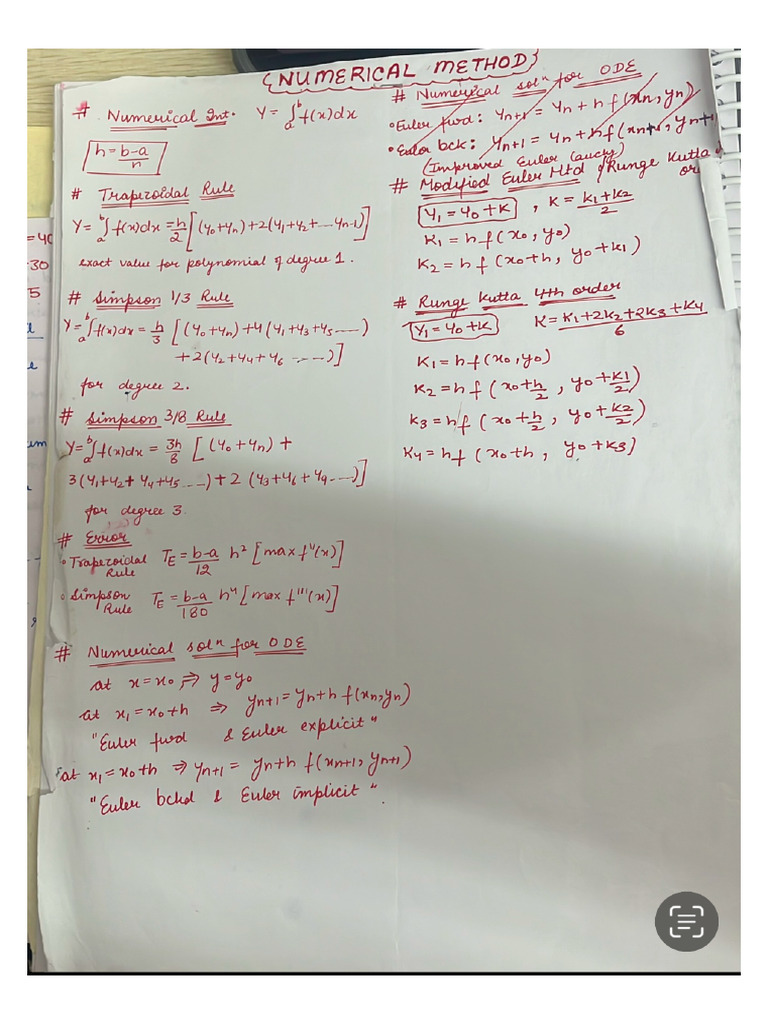 (NUMERICAL METHOD)
# Numerical Int. Y = ∫ₐᵇ f(x)dx
h = b-a/n
# Trapezoidal Rule
Y = ∫ₐᵇ f(x)dx = h/2 [(y₀+yₙ)+2(y₁+y₂+....yₙ₋₁)]
exact value for polynomial of degree 1.
# Simpson 1/3 Rule
Y = ∫ₐᵇ f(x)dx = h/3 [(y₀+yₙ)+4(y₁+y₃+y₅.....)
+2(y₂+y₄+y₆ .....)]
for degree 2.
# Simpson 3/8 Rule
Y = ∫ₐᵇ f(x)dx = 3h/8 [(y₀+yₙ) +
3(y₁+y₂+y₄+y₅....)+2(y₃+y₆+y₉....)]
for degree 3.
# Error
• Trapezoidal Rule T_E = b-a/12 h² [max f''(x)]
• Simpson Rule T_E = b-a/180 h⁴ [max f''''(x)]
# Numerical solⁿ for ODE
at x = x₀, ⇒ y = y₀
at x₁ = x₀+h ⇒ yₙ₊₁ = yₙ+h f(xₙ,yₙ)
"Euler fwd & Euler explicit"
at x₁ = x₀+h ⇒ yₙ₊₁ = yₙ+h f(xₙ₊₁, yₙ₊₁)
"Euler bckd & Euler implicit"
# Numerical solⁿ for ODE
• Euler fwd: yₙ₊₁ = yₙ + h f(xₙ,yₙ)
• Euler bck: yₙ₊₁ = yₙ + h f(xₙ₊₁, yₙ₊₁
(Improved Euler Cauchy)
# Modified Euler Mtd (Runge Kutta
or
y₁ = y₀+K , K = k₁+k₂/2
K₁ = h f(x₀, y₀)
K₂ = h f(x₀+h, y₀+k₁)
# Runge Kutta 4th order
y₁ = y₀+K K = K₁+2K₂+2K₃+K₄/6
K₁ = h f(x₀,y₀)
K₂ = h f(x₀+h/2, y₀+K₁/2)
K₃ = h f(x₀+h/2, y₀+K₂/2)
K₄ = h f(x₀+h, y₀+K₃)
=40
30
5